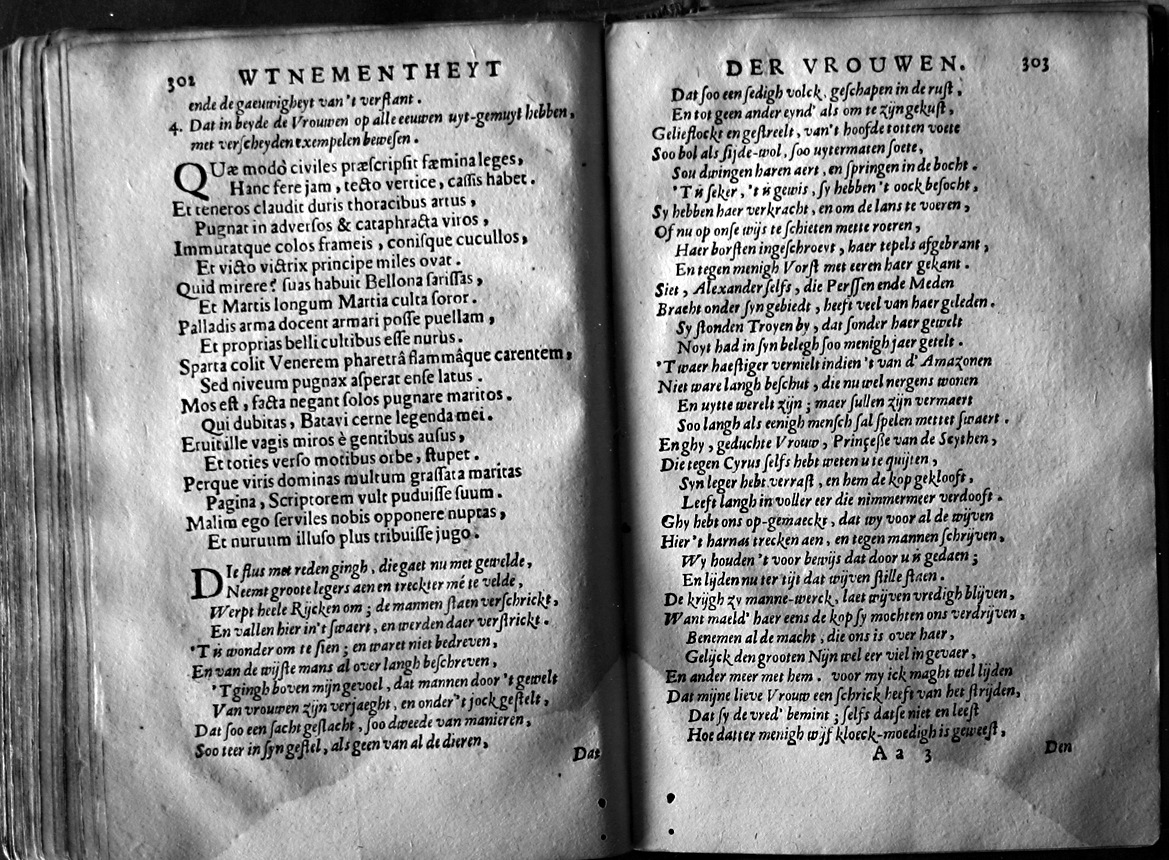 302 WTNEMENTHEYT
ende de gaeuwigheyt van 't verstant.
4. Dat in beyde de Vrouwen op alle eeuwen uyt-gemuyt hebben,
met verscheyden exempelen bewesen.
QUæ modò civiles præscripsit fæmina leges,
Hanc fere jam, tecto vertice, cassis habet.
Et teneros claudit duris thoracibus artus,
Pugnat in adversos & cataphracta viros,
Immutatque colos frameis, conisque cucullos,
Et victo victrix principe miles ovat.
Quid mirere? suas habuit Bellona sarissas,
Et Martis longum Martia culta soror.
Palladis arma docent armari posse puellam,
Et proprias belli cultibus esse nurus.
Sparta colit Venerem pharetrâ flammâque carentem,
Sed niveum pugnax asperat ense latus.
Mos est, facta negant solos pugnare maritos.
Qui dubitas, Batavi cerne legenda mei.
Eruit ille vagis miros è gentibus ausus,
Et toties verso motibus orbe, stupet.
Perque viris dominas multum grassata maritas
Pagina, Scriptorem vult puduisse suum.
Malim ego serviles nobis opponere nuptas,
Et nuruum illuso plus tribuisse jugo.
DIe flus met reden gingh, die gaet nu met gewelde,
Neemt groote legers aen en treckter mé te velde,
Werpt heele Rijcken om; de mannen staen verschrickt,
En vallen hier in't swaert, en werden daer verstrickt.
'T is wonder om te sien; en waret niet bedreven,
En van de wijste mans al over langh beschreven,
'Tgingh boven mijn gevoel, dat mannen door 't gewelt
Van vrouwen zijn verjaeght, en onder 't jock gestelt,
Dat soo een sacht geslacht, soo dweede van manieren,
Soo teer in syn gestel, als geen van al de dieren,
Dat
DER VROUWEN. 303
Dat soo een sedigh volck, geschapen in de rust,
En tot geen ander eynd' als om te zijn gekust,
Gelieflockt en gestreelt, van't hoofde totten voete
Soo bol als sijde-wol, soo uytermaten soete,
Sou dwingen haren aert, en springen in de bocht.
'T is seker, 't is gewis, sy hebben 't oock besocht,
Sy hebben haer verkracht, en om de lans te voeren,
Of nu op onse wijs te schieten mette roeren,
Haer borsten ingeschroeyt, haer tepels afgebrant,
En tegen menigh Vorst met eeren haer gekant.
Siet, Alexander selfs, die Perssen ende Meden
Bracht onder syn gebiedt, heeft veel van haer geleden.
Sy stonden Troyen by, dat sonder haer gewelt
Noyt had in syn belegh soo menigh jaer getelt.
'T waer haestiger vernielt indien 't van d' Amazonen
Niet ware langh beschut, die nu wel nergens wonen
En uytte werelt zijn; maer sullen zijn vermaert
Soo langh als eenigh mensch sal spelen mettet swaert.
En ghy, geduchte Vrouw, Prinçesse van de Scythen,
Die tegen Cyrus selfs hebt weten u te quijten,
Syn leger hebt verrast, en hem de kop geklooft,
Leeft langh in voller eer die nimmermeer verdooft.
Ghy hebt ons op-gemaeckt, dat wy voor al de wijven
Hier 't harnas trecken aen, en tegen mannen schrijven,
Wy houden 't voor bewijs dat door u is gedaen;
En lijden nu ter tijt dat wijven stille staen.
De krijgh zy manne-werck, laet wijven vredigh blijven,
Want maeld' haer eens de kop sy mochten ons verdrijven,
Benemen al de macht, die ons is over haer,
Gelijck den grooten Nijn wel eer viel in gevaer,
En ander meer met hem. voor my ick maght wel lijden
Dat mijne lieve Vrouw een schrick heeft van het strijden,
Dat sy de vred' bemint; selfs datse niet en leest
Hoe datter menigh wijf kloeck-moedigh is geweest,
A a 3 Den